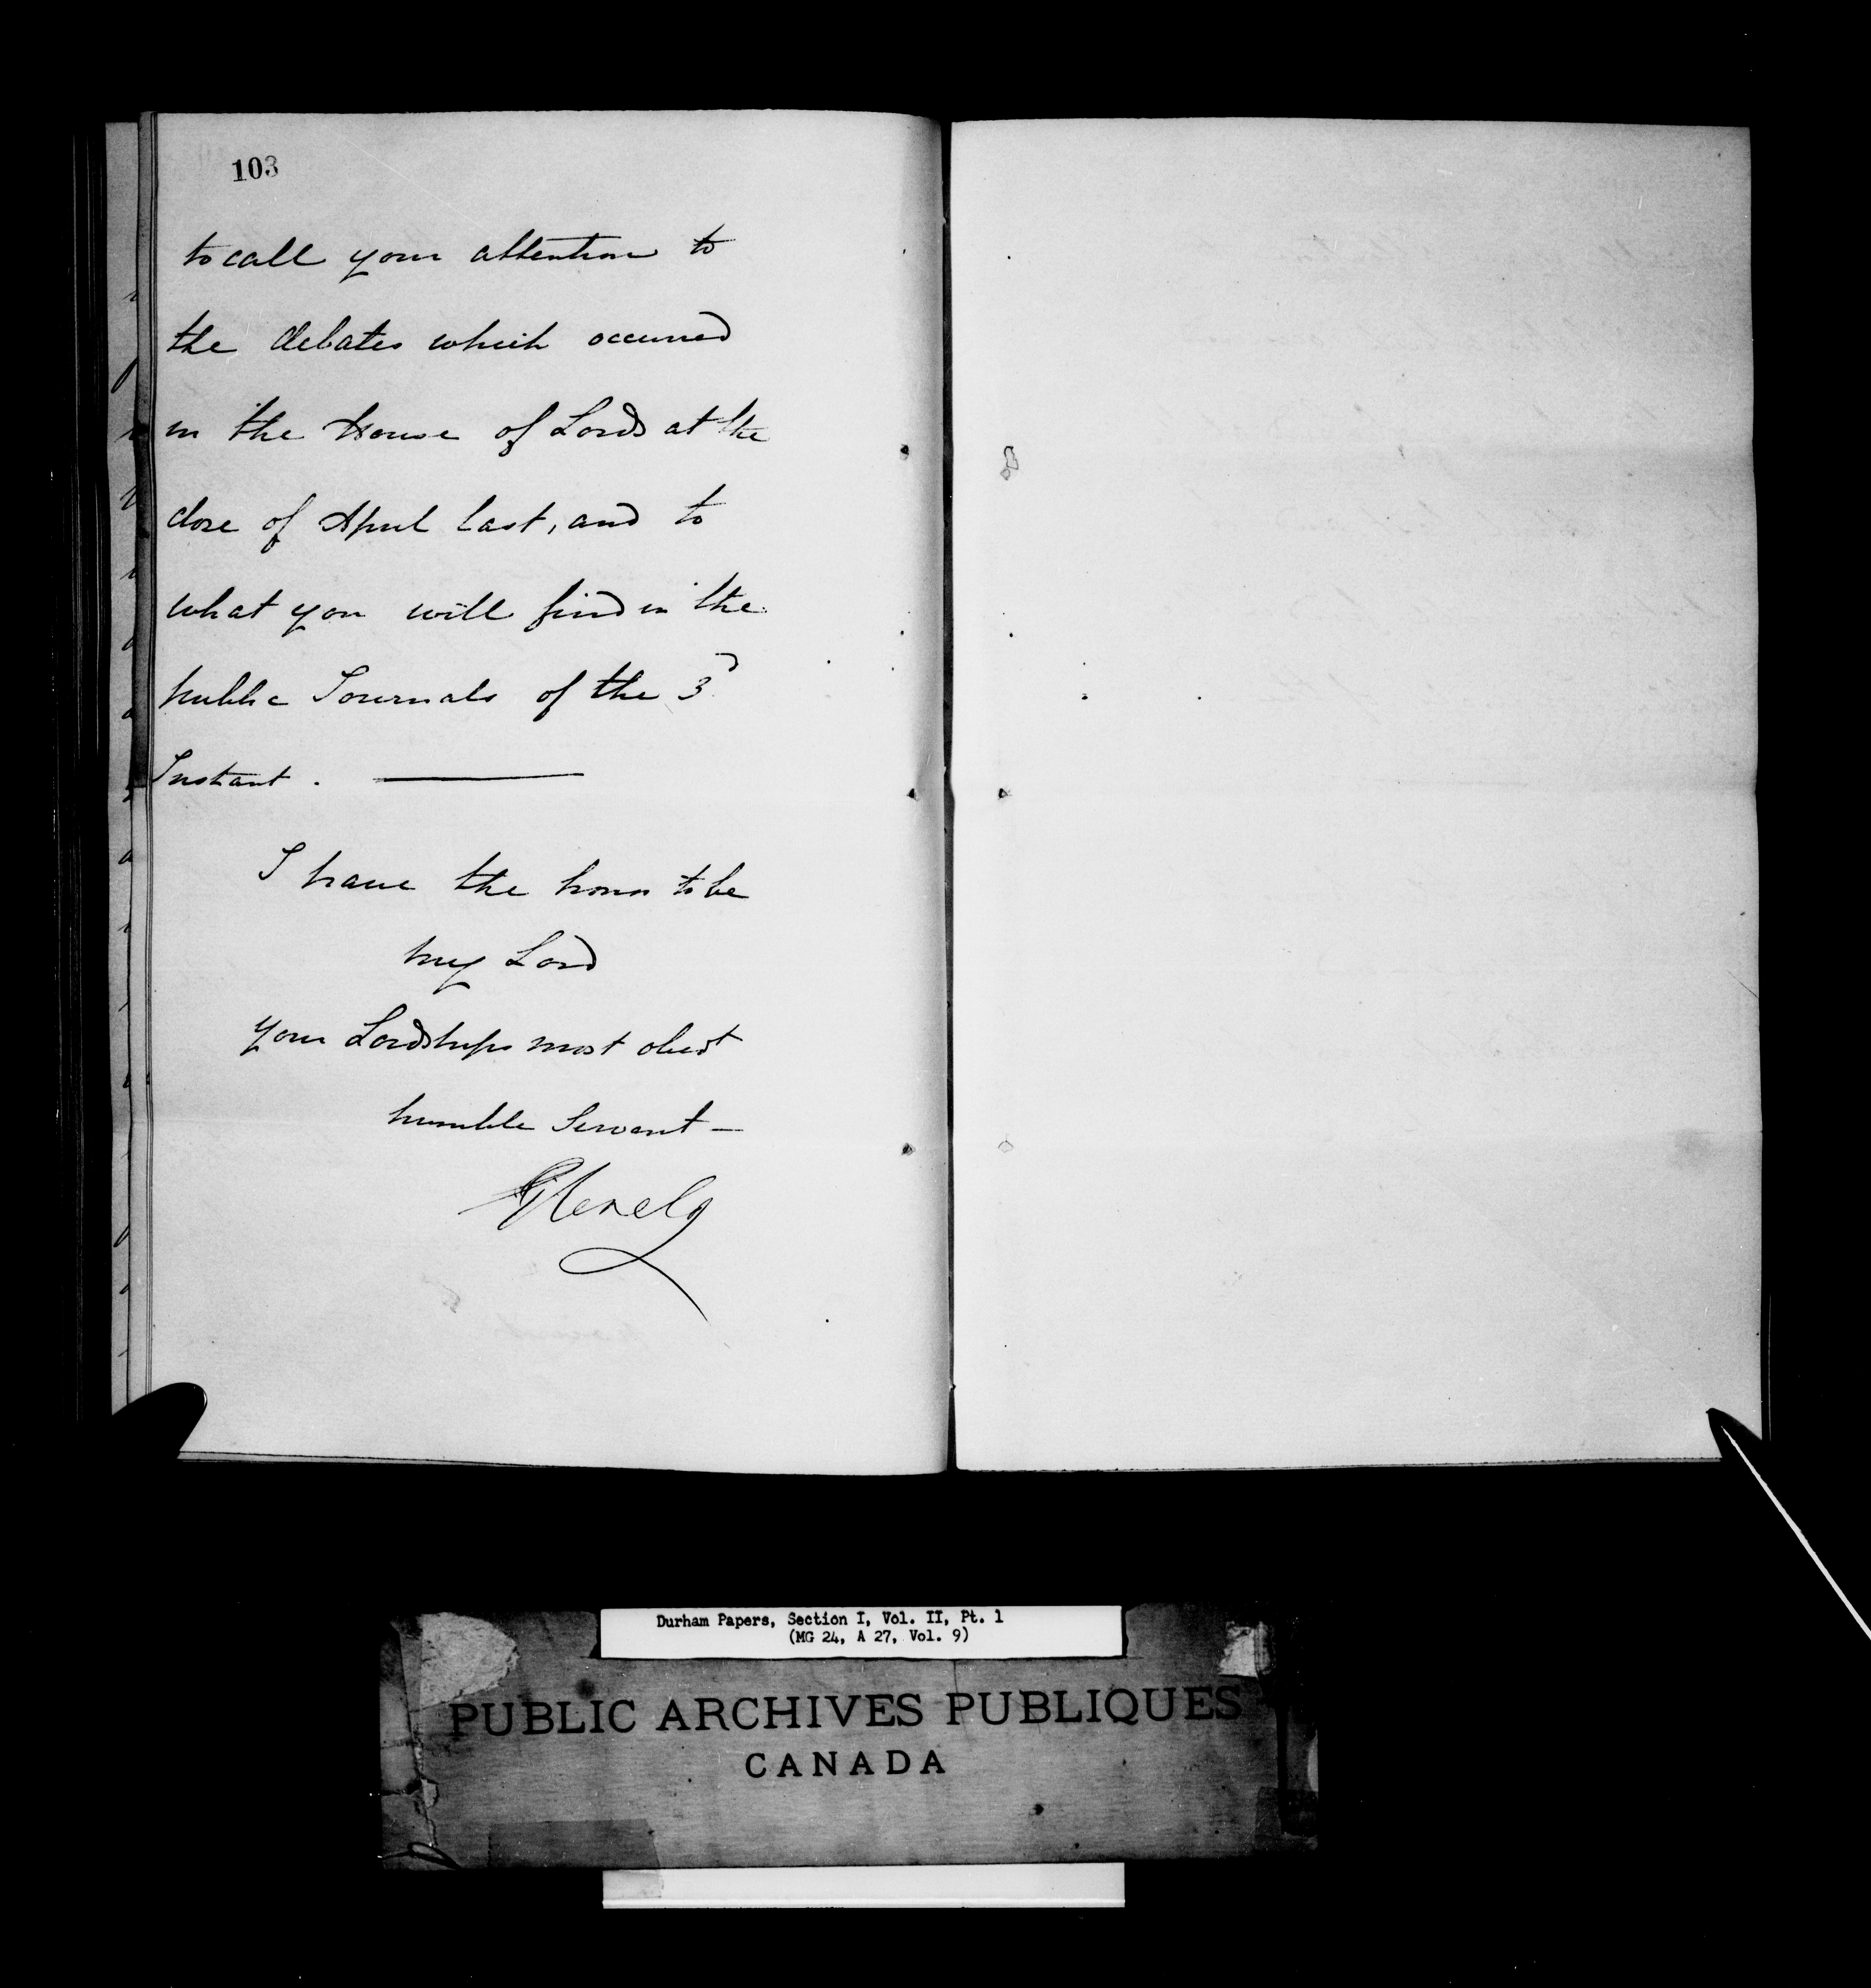 103
to call your attention to
the debates which occurred
in the House of Lords at the
close of April last, and to
what you will find in the
public Journals of the 3d
Instant.
I have the honor to be
my Lord
Your Lordships most obedt
humble Servant —
Glenelg
Durham Papers, Section I, Vol. II, Pt. 1
(MG 24, A 27, Vol. 9)
PUBLIC ARCHIVES PUBLIQUES
CANADA